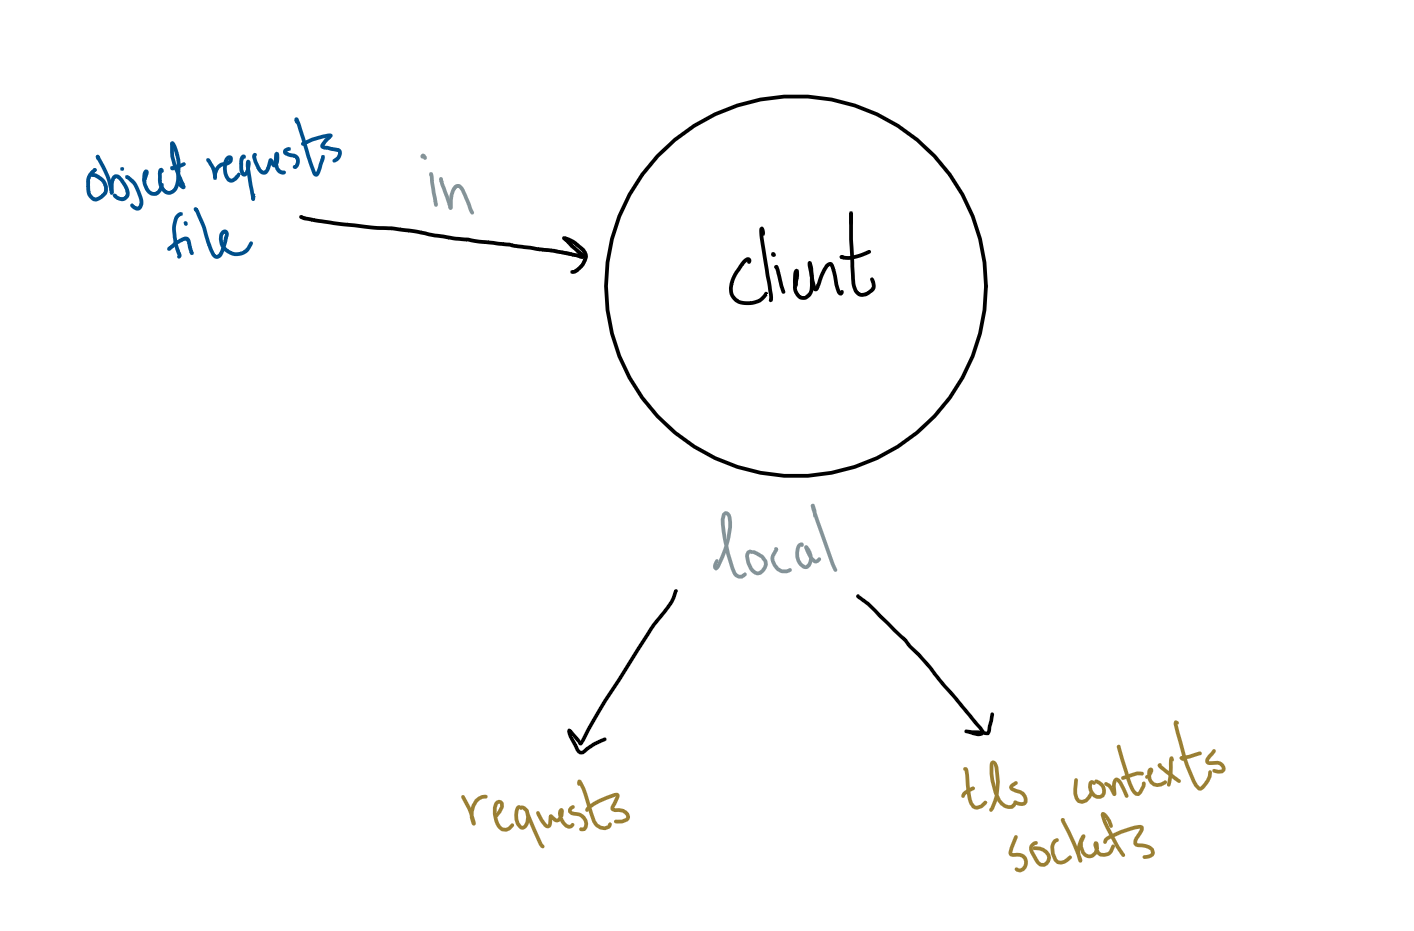 object requests
file
in
client
local
requests
tls contexts
sockets